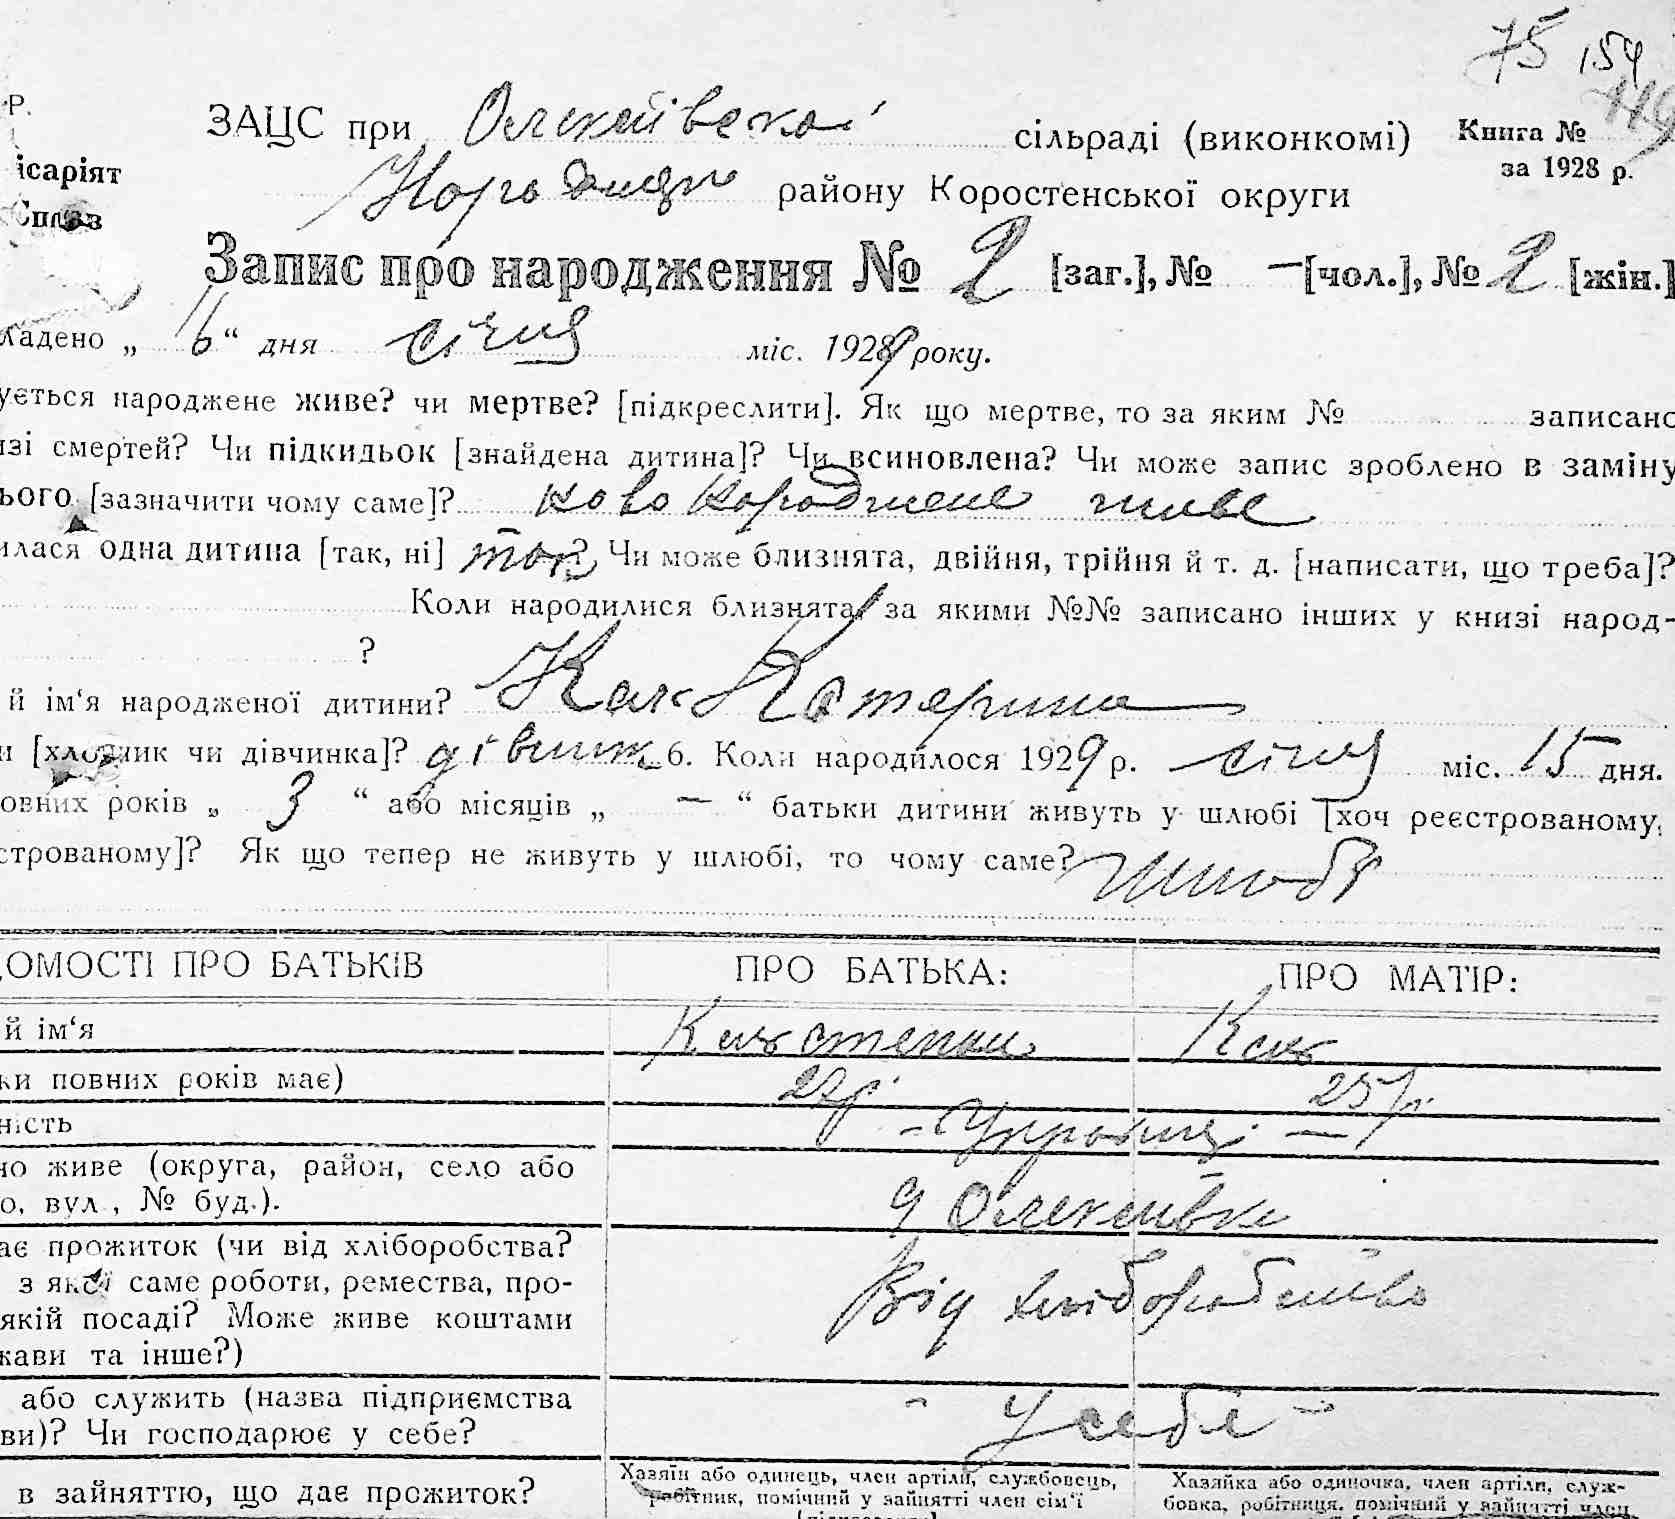 75 154
Р. ЗАЦС при Олексіївской сільраді (виконкомі) Книга №
ісаріят районy Коростенської округи за 1928 р.
Справ
Запис про народження № 2 [заг.], № — [чол.], № 2 [жін.]
ладено „ 16 “ дня січня міс. 1929 року.
ується народжене живе? чи мертве? [підкреслити]. Як що мертве, то за яким № записано
изі смертей? Чи підкидьок [знайдена дитина]? Чи всиновлена? Чи може запис зроблено в заміну
ього [зазначити чому саме]? ново народжене живе
илася одна дитина [так, ні] так? Чи може близнята, двійня, трійня й т. д. [написати, що треба]?
Коли народилися близнята, за якими №№ записано інших у книзі народ-
?
й ім‘я народженої дитини? Катерина
и [хлопчик чи дівчинка]? 6. Коли народилося 1929 р. січня міс. 15 дня.
овних років „ 3 “ або місяців „ — “ батьки дитини живуть у шлюбі [хоч реєстрованому,
строваному]? Як що тепер не живуть у шлюбі, то чому саме?
ДОМОСТІ ПРО БАТЬКІВ ПРО БАТЬКА: ПРО МАТІР:
й ім‘я Степан
ки повних років має) 27 р. 25 р.
ність — Українці —
но живе (округа, район, село або
о, вул., № буд.). Олексіївка
ає прожиток (чи від хліборобства?
з якої саме роботи, ремества, про-
якій посаді? Може живе коштами
жави та інше?) Від хліборобства
або служить (назва підприємства
ви)? Чи господарює у себе? У себе
в зайняттю, що дає прожиток? Хазяїн або одинець, член артілі, службовець, Хазяйка або одиночка, член артіли, служ-
робітник, помічний у зайнятті член сім‘ї бовка, робітниця, помічний у зайнятті член